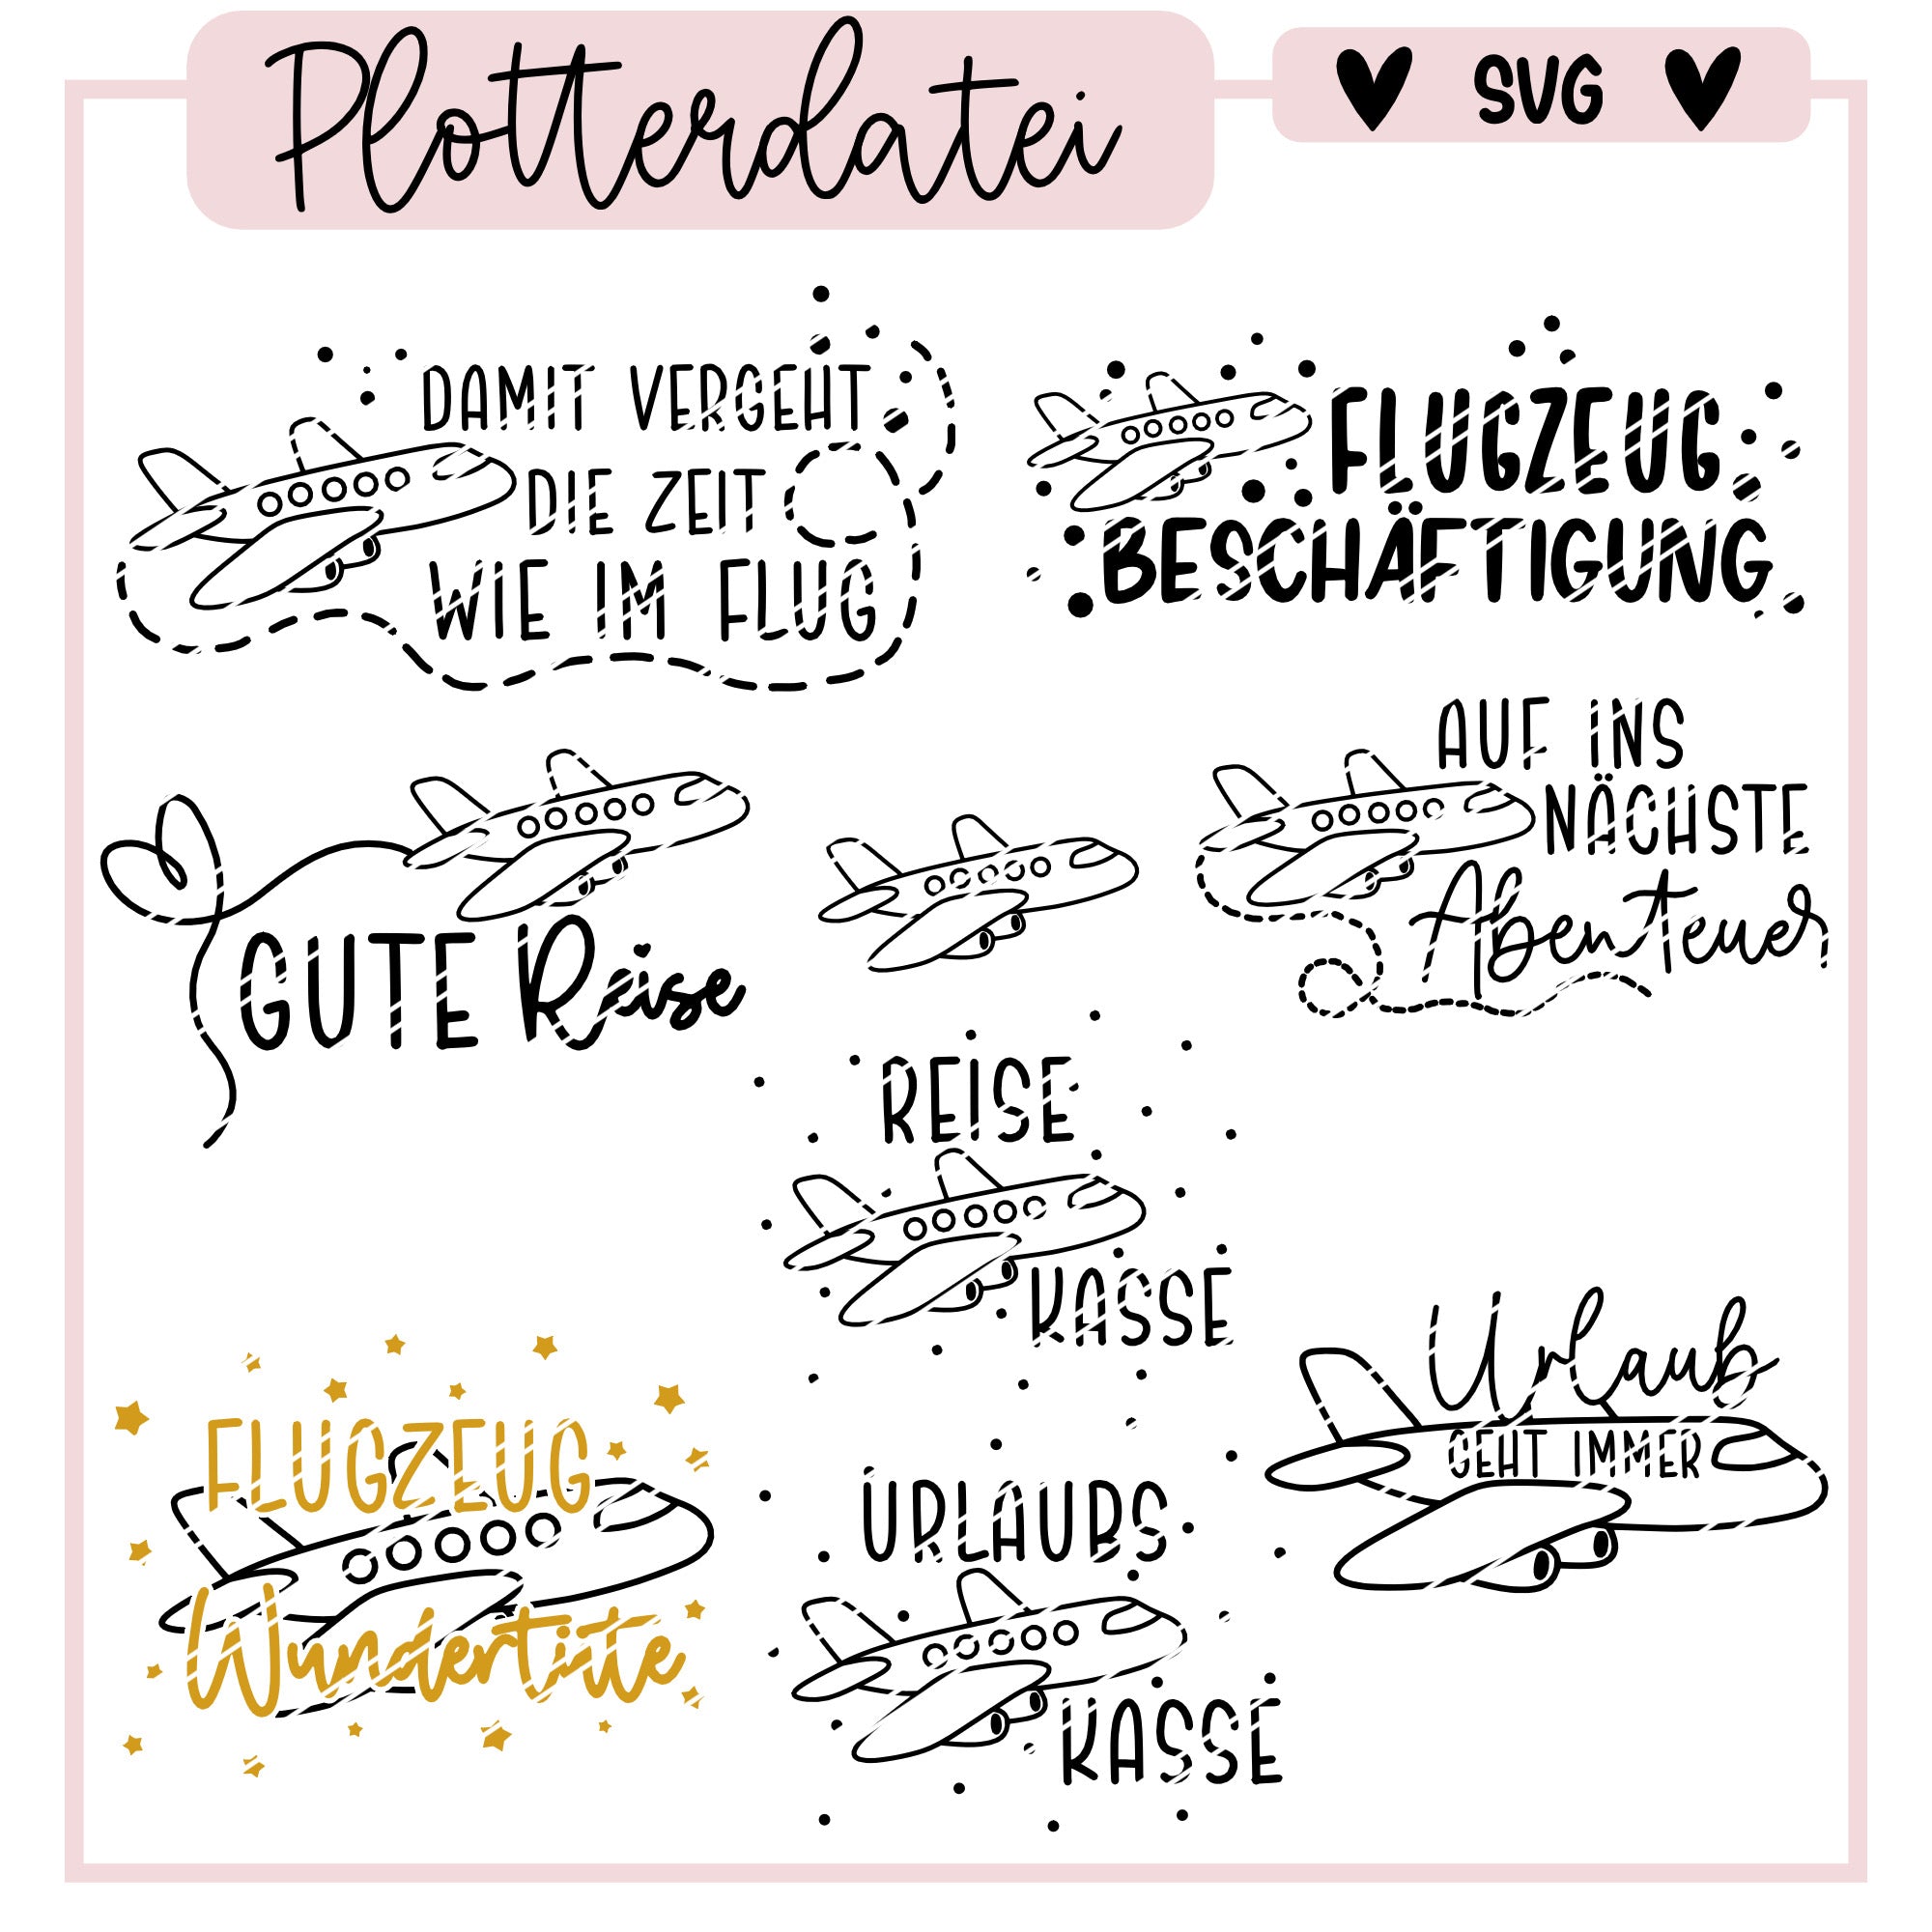 Plotterdatei
SVG
DAMIT VERGEHT
DIE ZEIT
WIE IM FLUG
FLUGZEUG
BESCHÄFTIGUNG
GUTE Reise
AUF INS
NÄCHSTE
Abenteuer
REISE
KASSE
Urlaub
GEHT IMMER
FLUGZEUG
Wundertüte
URLAUBS
KASSE